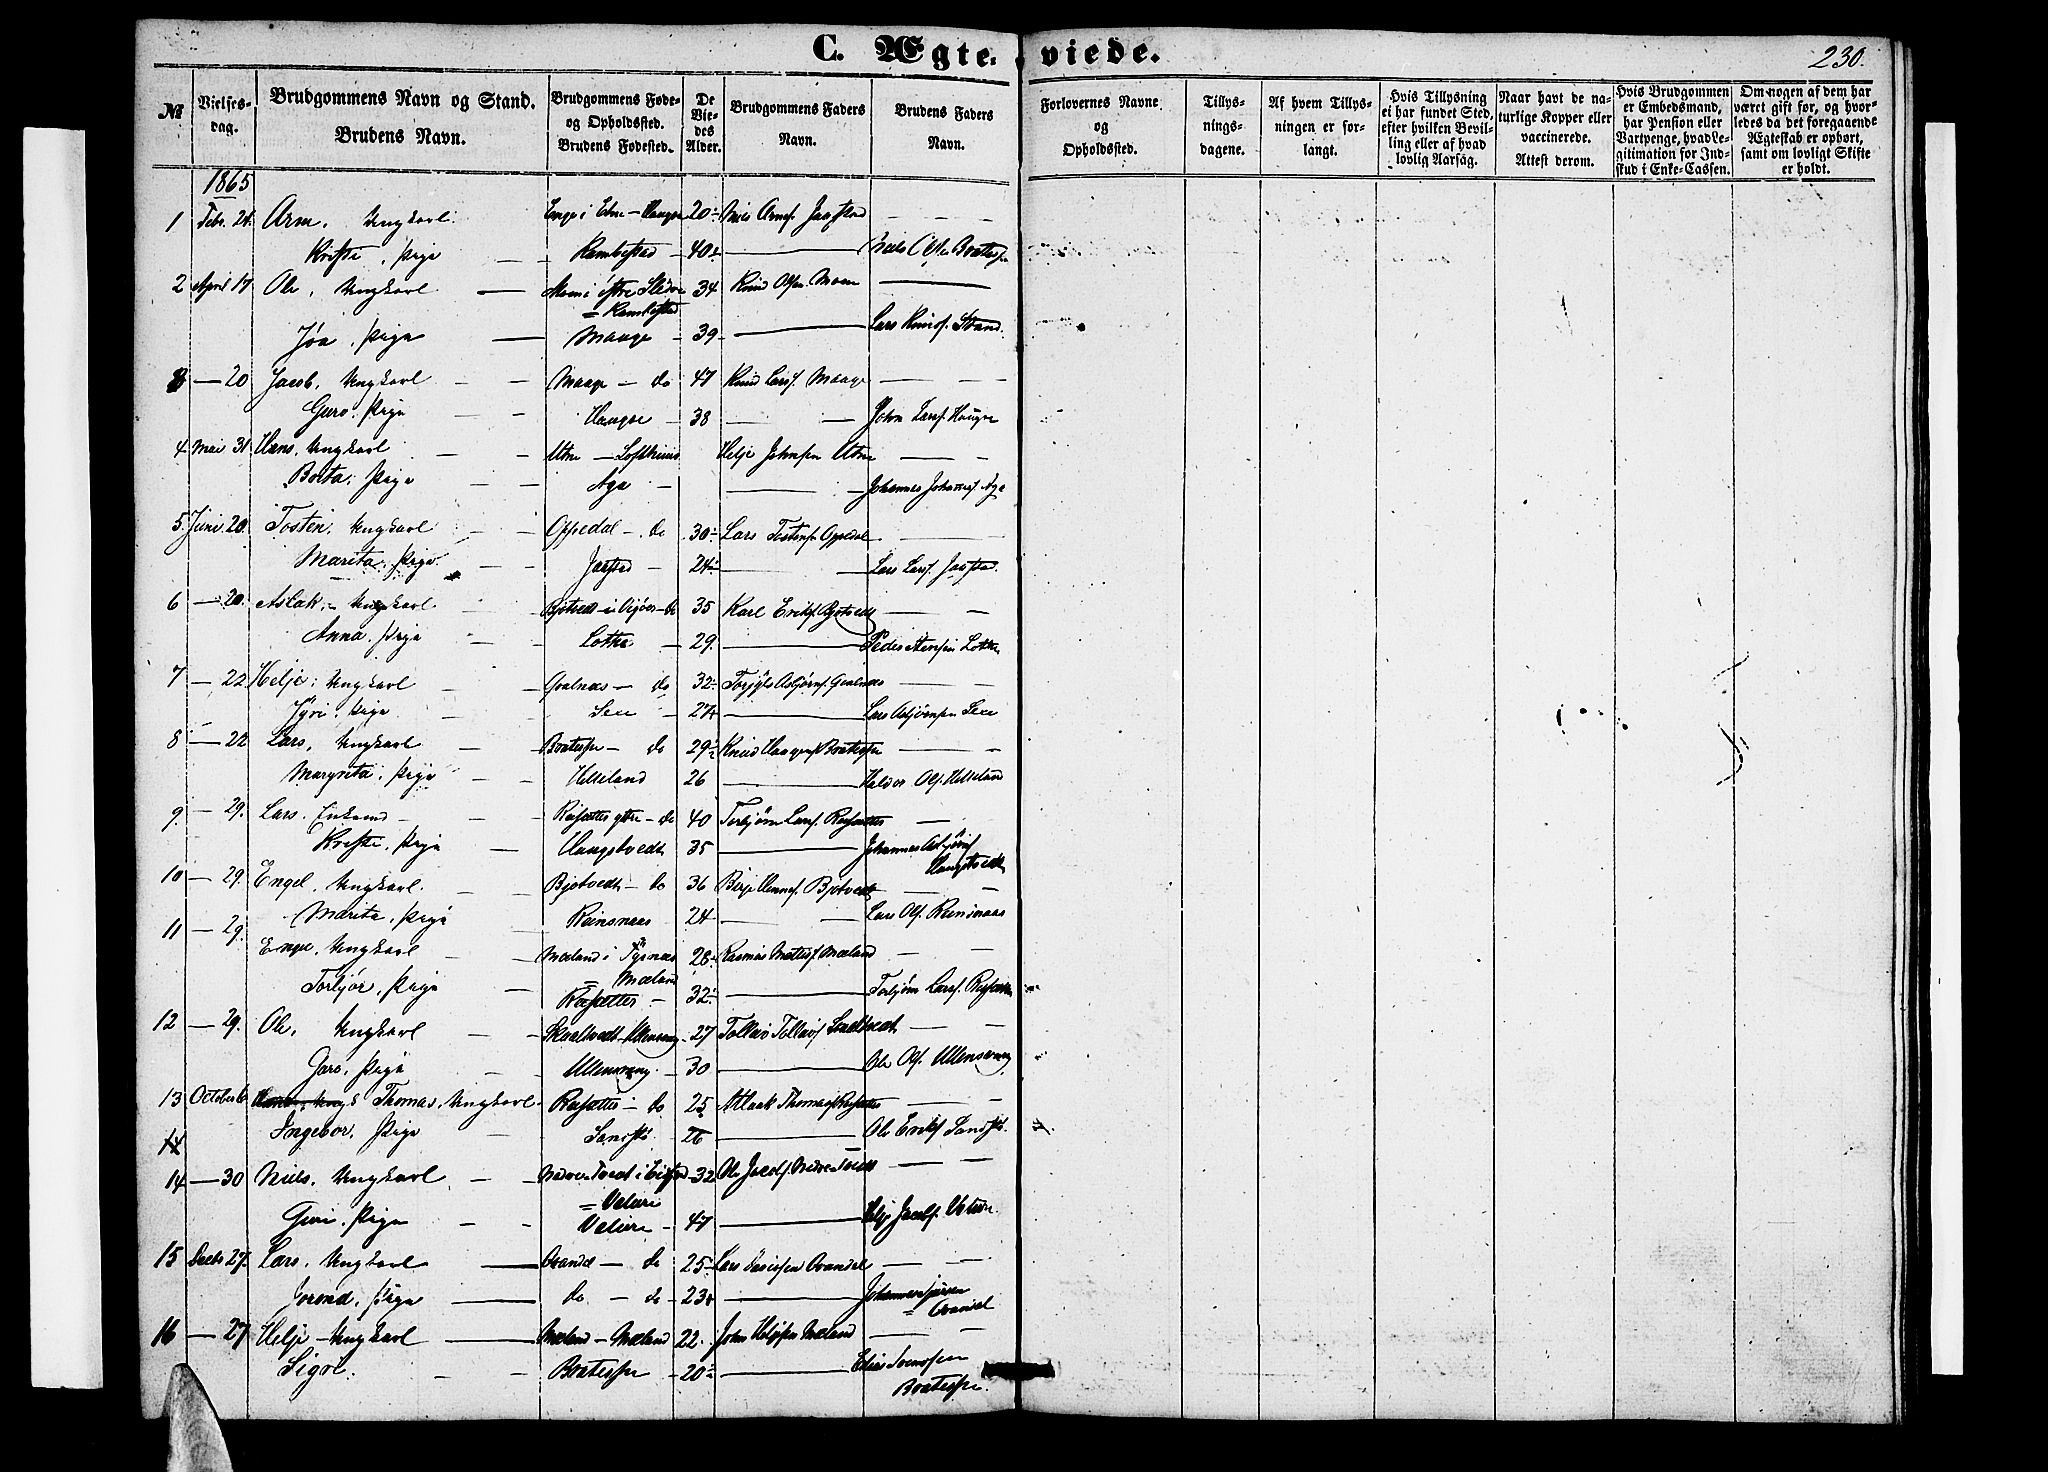 C. Ægteviede.
230.
№
Vielsesdag.
Brudgommens Navn og Stand.
Brudens Navn.
Brudgommens Føde- og Opholdssted.
Brudens Fødested.
De Viedes Alder.
Brudgommens Faders Navn.
Brudens Faders Navn.
Forlovernes Navne og Opholdssted.
Tillysningsdagene.
Af hvem Tillysningen er forlangt.
Hvis Tillysning ei har fundet Sted, efter hvilken Bevilling eller af hvad lovlig Aarsag.
Naar havt de naturlige Kopper eller vaccinerede. Attest derom.
Hvis Brudgommen er Embedsmand, har Pension eller Vartpenge, hvad Legitimation for Indskud i Enke-Cassen.
Om nogen af dem har været gift før, og hvorledes da det foregaaende Ægteskab er ophørt, samt om lovligt Skifte er holdt.
1865
1 Febr. 24. Arne, Ungkarl. Enge i Etne — Haugse 20 Niels Arnes. Jaastad — — —
Kristi, Pige — — Rambestad — 40 — Niels Olsen Bratespe
2 April 17 Ole, Ungkarl — Moen i østre Slidre = Rambestad 34 Knud Olsen Moen —
Jøa, Pige — Maage — 39 — Lars Knuds. Strand.
3 — 20 Jacob, Ungkarl — — Maage — do 47 Knud Larss. Maage — — —
Guro, Pige — — Haugse — 38 — — John Larss. Haugse
4 Mai 31 Hans, Ungkarl — — Utne — Lofthuus Helje Johnsen Utne — —
Brita, Pige — — Aga — — — Johannes Johannes. Aga
5 Juni 20. Tosten, Ungkarl — — Oppedal — do 30 Lars Tostensen Oppedal — —
Marita, Pige. — — Jaastad — 24 — — Lars Larss. Jaastad.
6 — 20. Aslak, Ungkarl — — Bjotvedt i Vigøer — do 35 Karl Eriks. Bjotvedt — —
Anna, Pige — — Lothe — 29. — Peder Larsen Lothe
7 — 22 Helje, Ungkarl — — Qvalnæs — do 32 Torgils Asbjørns. Qvalnæs — —
Jyri, Pige — — Sexe — 27 — Lars Asbjørnsen Sexe
8 — 22 Lars, Ungkarl — Bratespe — do 29 Knud Haagens. Bratespe — —
Margreta, Pige — — Helleland 26 — Haldor Ols. Helleland
9. — 29. Lars, Enkemand — — Reisæter ytre — do 40 Torbjørn Larss. Reisæter —
Kristi, Pige — Haugstvedt 35 — Johannes Asbjørns. Haugstvedt
10 — 29. Engel, Ungkarl. — — Bjotvedt — do 36 Birje Hanns. Bjotvedt — —
Marita, Pige — Reinsnaas 24 — — Lars Ols. Reinsnaas
11 — 29. Engel, Ungkarl — — Mæland i Tysnæs = Mæland 28. Rasmus Mattess. Mæland — —
Torbjør, Pige — Reisæter — 32 — Torbjørn Larss. Reisæter
12 — 29. Ole, Ungkarl — — Skaaltvedt — Ullensvang — 27 Tollav Tollavs. Skaltvedt — —
Guro, Pige — Ullensvang — 30 — Ole Ols. Ullensvang
13 October 6 Thomas, Ungkarl — Reisæter — do 25 Atlaak Thomas. Reisæter — —
Ingebor, Pige — Sandstø — 26 — Ole Eriks. Sandstø.
14
14 — 30 Niels, Ungkarl. — — Nedre Tvedt i Eifjord = Velure — 32 Ole Jacobs. Nedre Tvedt — —
Guri, Pige — — Velure — 47 — Helje Jacobs. Velure
15 Decbr 27. Lars, Ungkarl — Qvandal — do 25 Lars Larssen Qvandal — —
Joront, Pige — do — do — 23 — Johannes = Qvandal
16 — 27 Helje — Ungkarl — Mæland — Mæland 22. John Heljesen Mæland — —
Sigri. — — Bratespe — 20 — Elias Svensen Bratespe.